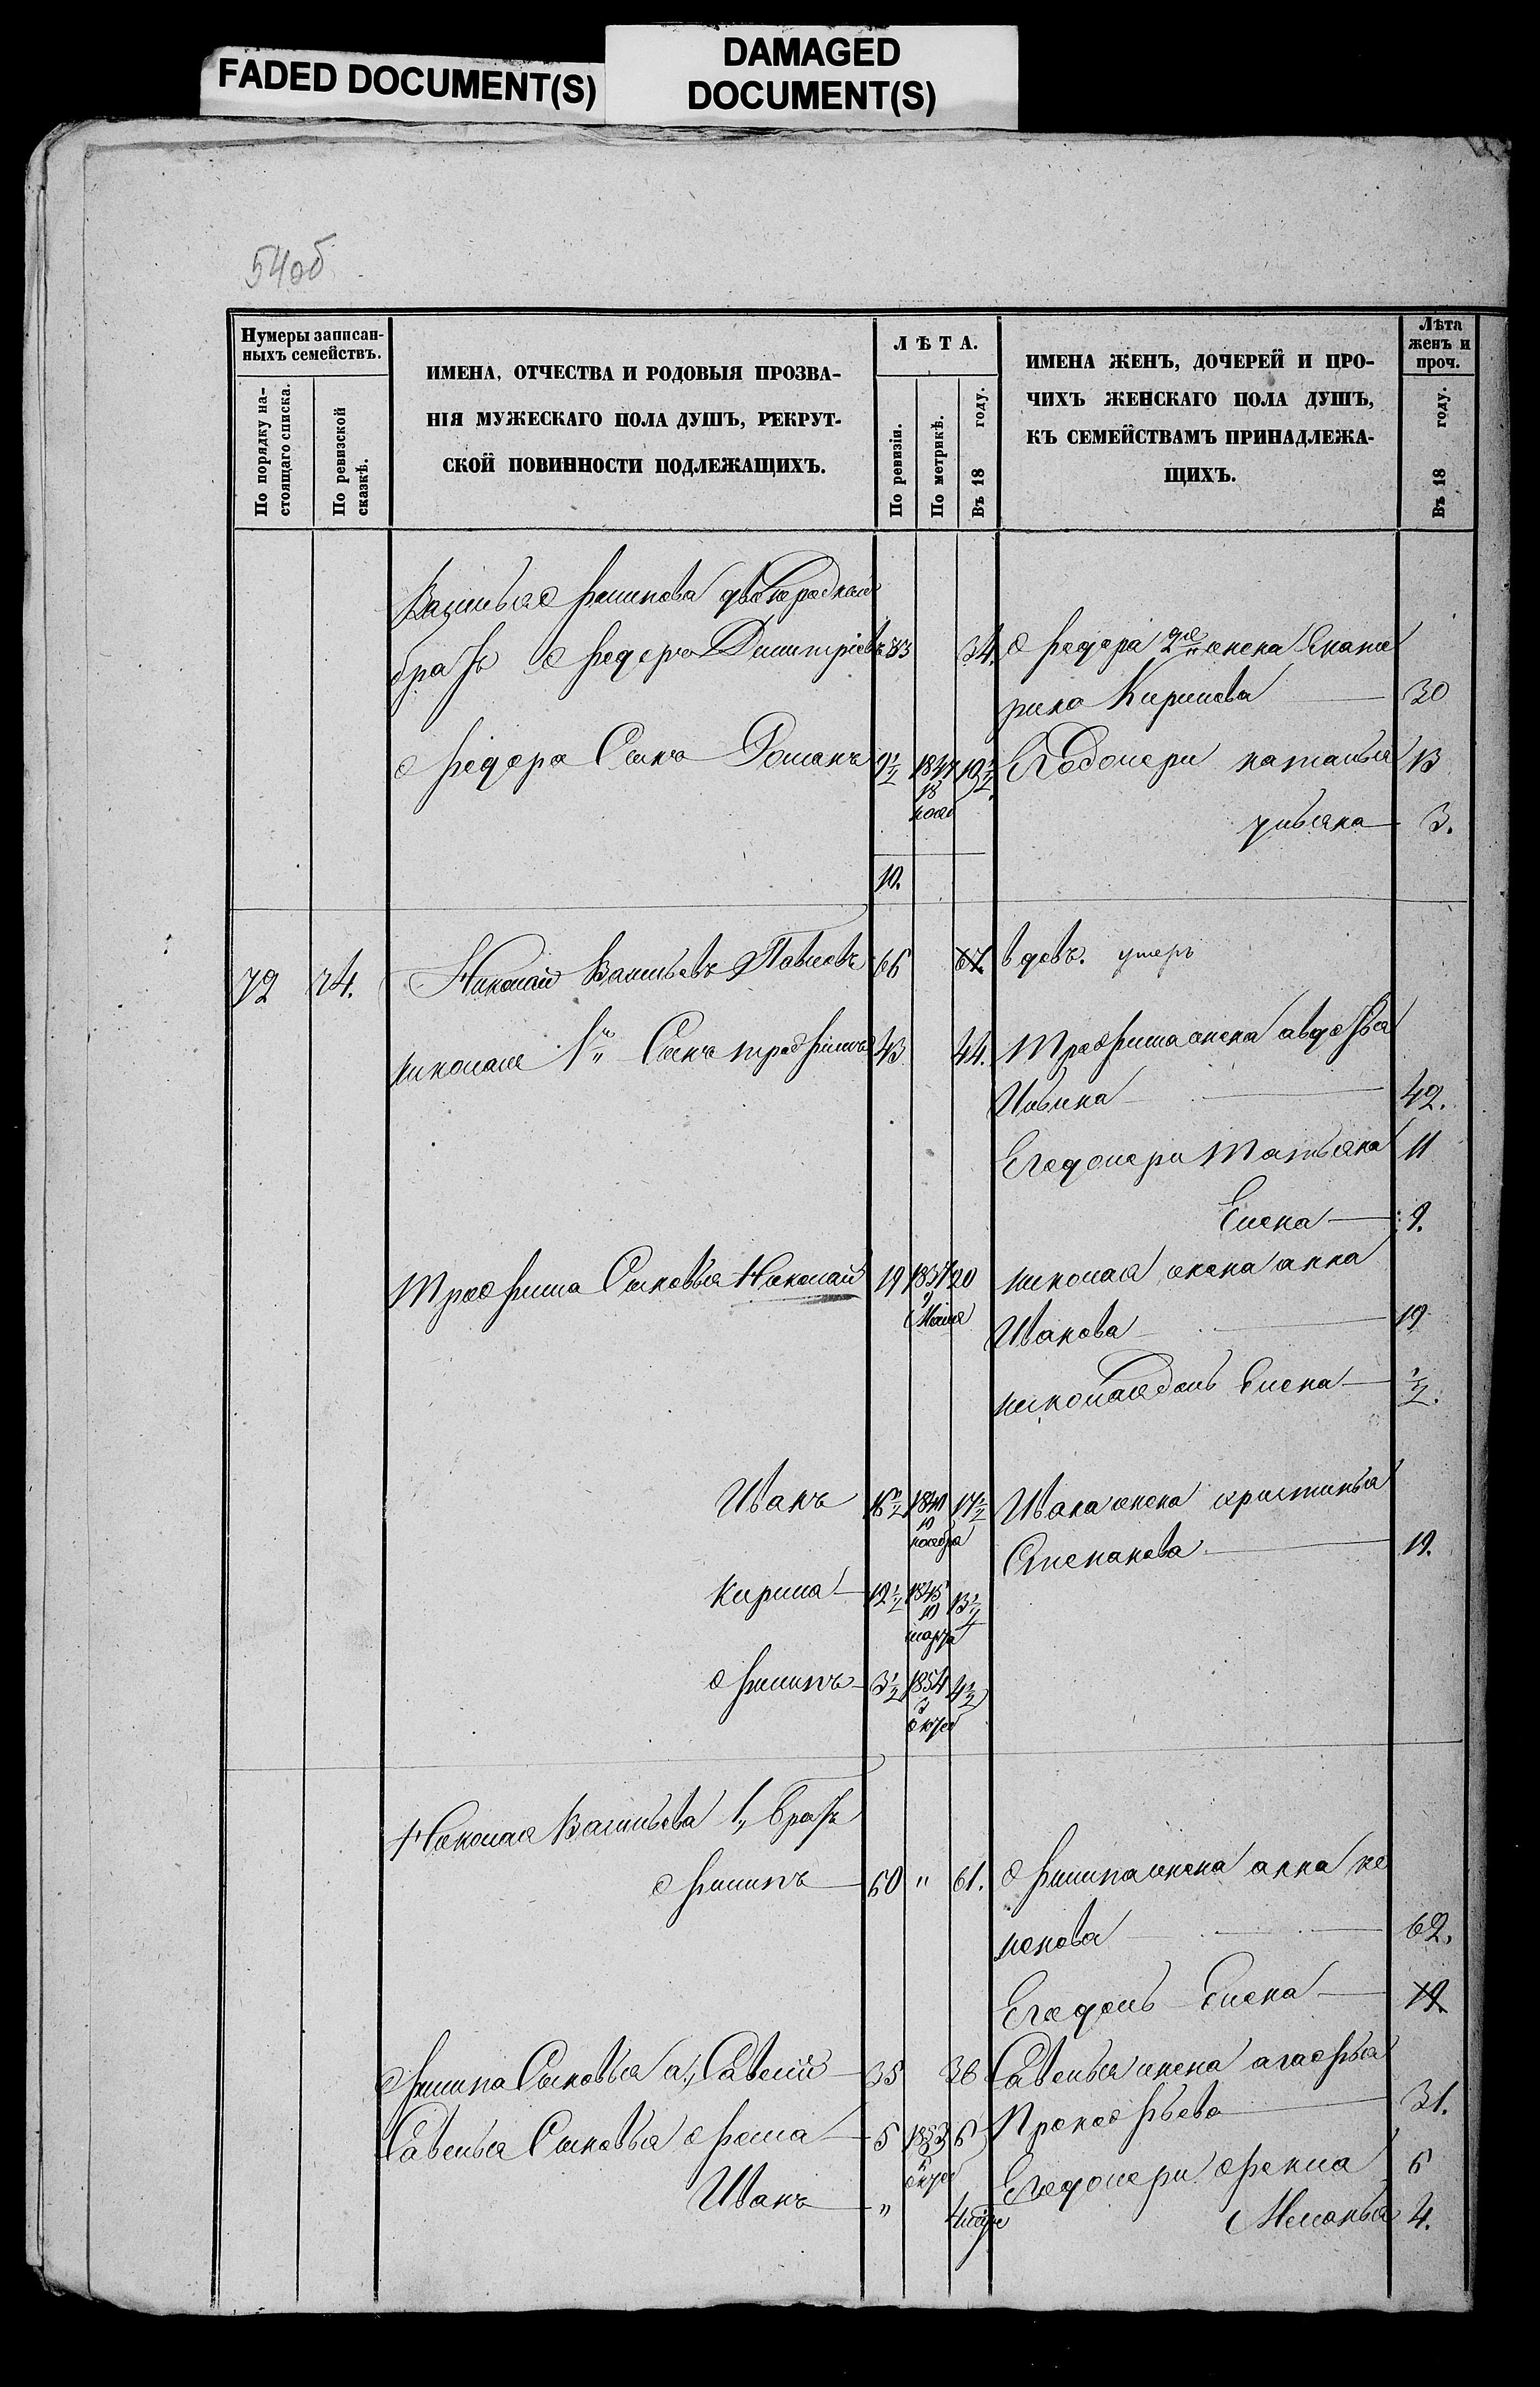 FADED DOCUMENT(S)
DAMAGED
DOCUMENT(S)
54об
Нумеры записан-
ныхъ семействъ.
По порядку на-
стоящаго списка.
По ревизской
сказкѣ.
ИМЕНА, ОТЧЕСТВА И РОДОВЫЯ ПРОЗВА-
НІЯ МУЖЕСКАГО ПОЛА ДУШЪ, РЕКРУТ-
СКОЙ ПОВИННОСТИ ПОДЛЕЖАЩИХЪ.
ЛѢТА.
По ревизіи.
По метрикѣ.
Въ 18 году.
ИМЕНА ЖЕНЪ, ДОЧЕРЕЙ И ПРО-
ЧИХЪ ЖЕНСКАГО ПОЛА ДУШЪ,
КЪ СЕМЕЙСТВАМЪ ПРИНАДЛЕЖА-
ЩИХЪ.
Лѣта
женъ и
проч.
Въ 18 году.
Филипова двоюродной
братъ Федеръ Димитріевъ 33 34. Федера 2й жена Екате
рина Кирилова 30
Федера Сынъ Романъ 9½ 1847 10½ Его дочери наталья 13
18
нояб
ульяна 3.
10.
72 74. Николай Васильевъ Павловъ 66 67. вдовъ. умеръ
николая 1й Сынъ трофимъ 43 44. Трофима жена авдотья
Ильина 42.
Его дочери Татьяна 11
Елена 9.
Трофима Сыновья Николай 19 1837 20 николая жена анна
9
Маія
Иванова 19
николая дочь Елена ½.
Иванъ 16½ 1840 17½ Ивана жена христинья
10
ноября
Степанова 19.
Кирила 12½ 1845 13½
10
марта
Филипъ 3½ 1854 4½
3
октяб
Николая Васильева 1, братъ
Филипъ 60 " 61. Филипа жена анна
62.
Его дочь Елена 19.
Филипа Сыновья а, Савелій 35 36 Савелья жена агафья
Прокофьева 31.
Савелья Сыновья Фома 5 1853 6
октяб
Его дочери Фекла 6
Иванъ " Меланья 4.